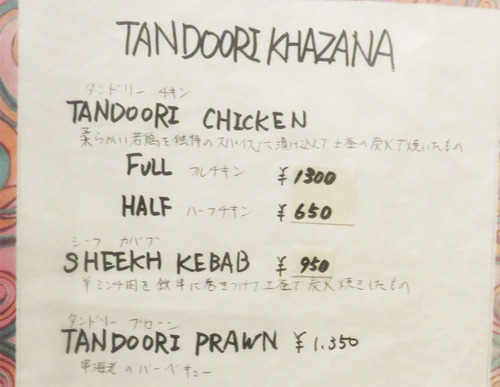 TANDOORI KHAZANA
タンドリー チキン
TANDOORI CHICKEN
柔らかい若鶏を独特のスパイスに漬け込んで土釜の炭火で焼いたもの
FULL フルチキン ¥1300
HALF ハーフチキン ¥650
シーク カバブ
SHEEKH KEBAB ¥950
羊ミンチ肉を鉄串に巻きつけて土釜で炭火焼きしたもの
タンドリー プローン
TANDOORI PRAWN ¥1.350
車海老のバーベキュー